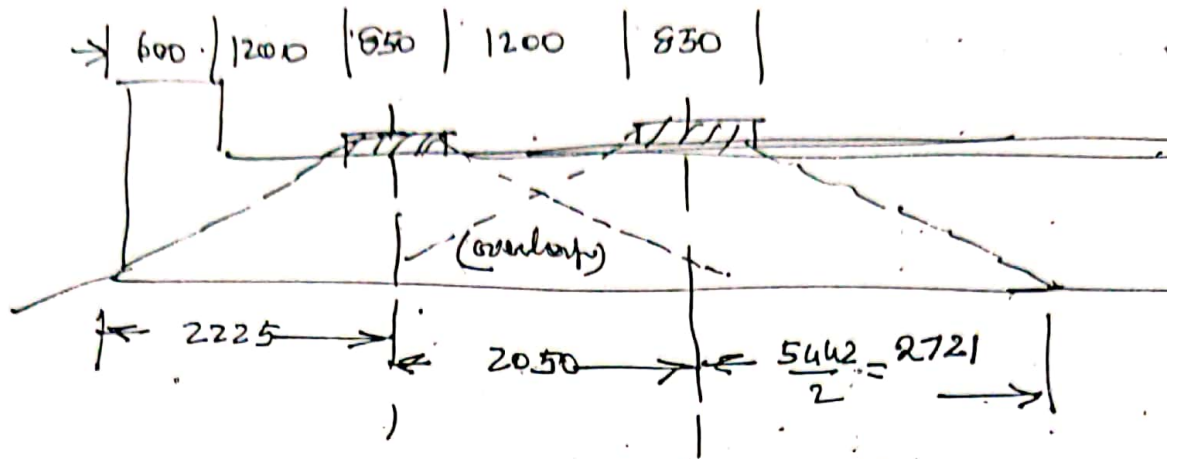 600 1200 850 1200 850
(overlap)
2225 2050 5442/2 = 2721